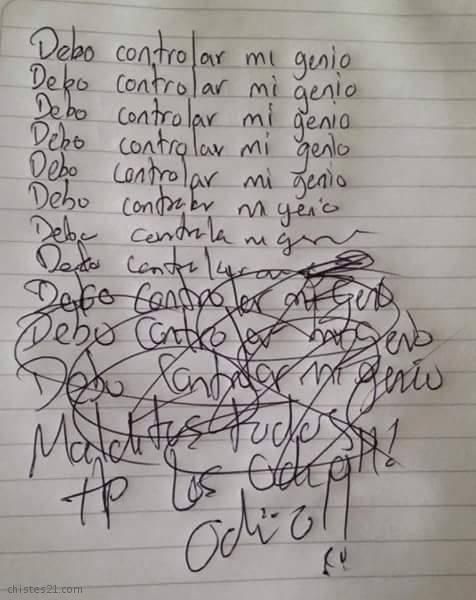 Debo controlar mi genio
Debo controlar mi genio
Debo controlar mi genio
Debo controlar mi genio
Debo controlar mi genio
Debo controlar mi genio
Debo
Debo
Debo Controlar mi Genio
Debo Controlar mi Genio
Debo Controlar mi Genio
Malditos todos
HP los Odio!!
Odio!!
chistes21.com